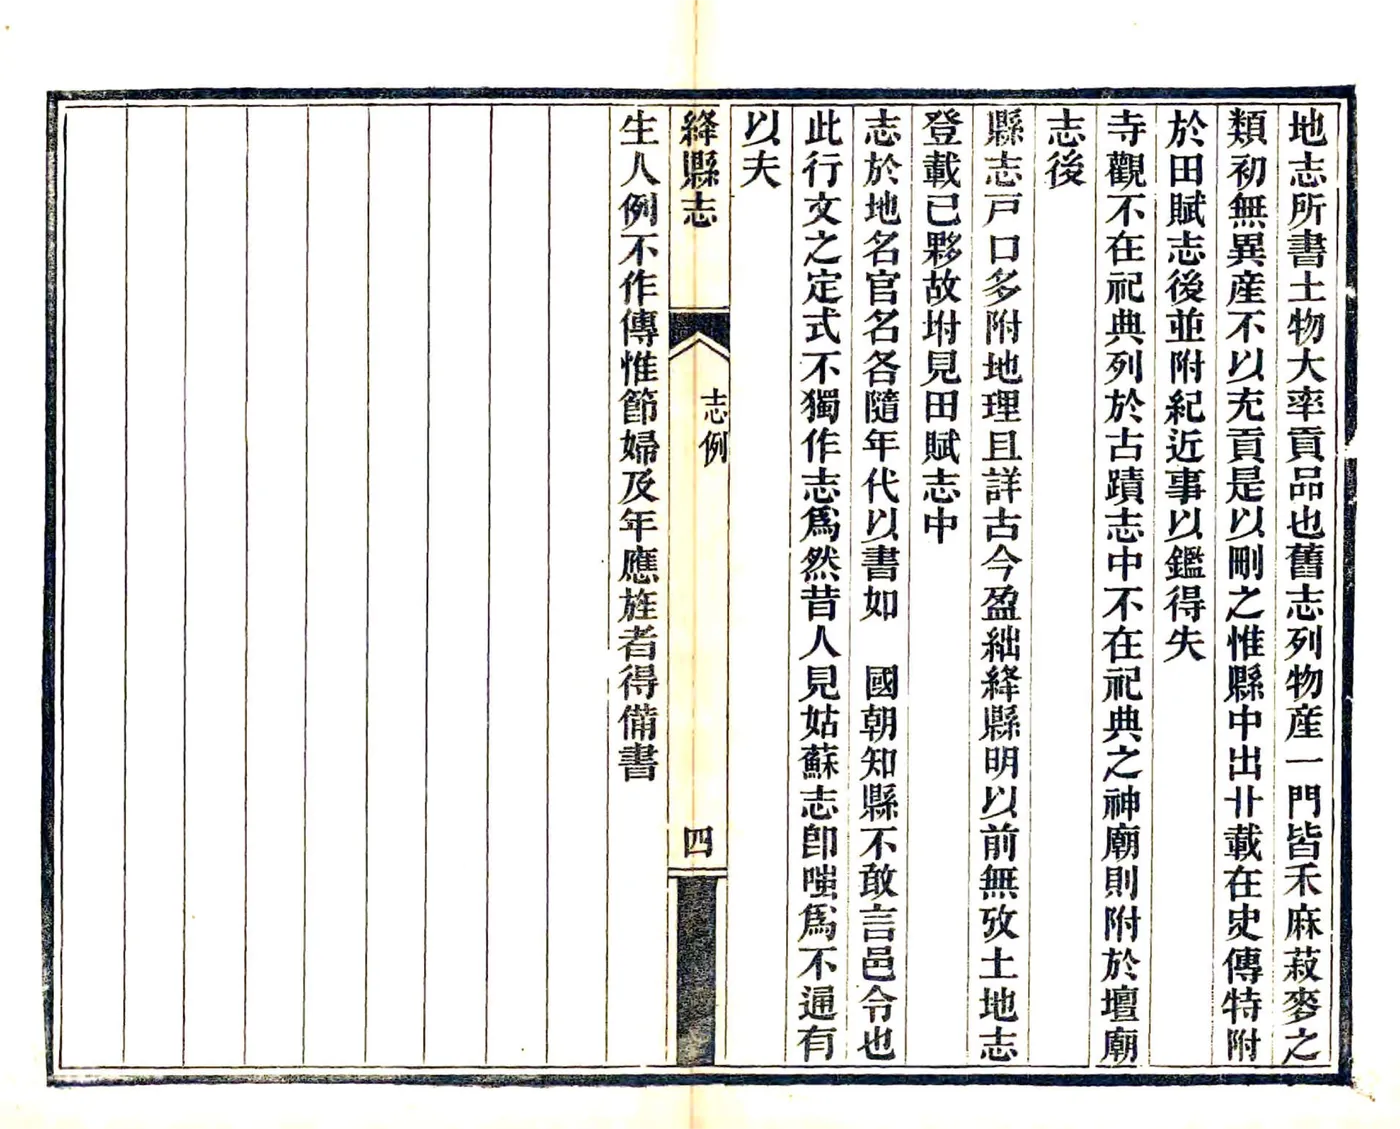 地志所書土物大率貢品也舊志列物産一門皆禾麻菽麥之
類初無異産不以充貢是以刪之惟縣中出廾載在史傳特附
於田賦志後並附紀近事以鑑得失
寺觀不在祀典列於古蹟志中不在祀典之神廟則附於壇廟
志後
縣志戸口多附地理且詳古今盈絀絳縣明以前無攷土地志
登載已夥故坿見田賦志中
志於地名官名各隨年代以書如　國朝知縣不敢言邑令也
此行文之定式不獨作志爲然昔人見姑蘇志卽嗤爲不通有
以夫
絳縣志
志例
四
生人例不作傳惟節婦及年應旌者得備書